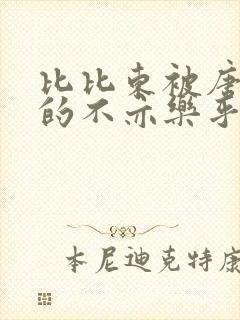 比比东被唐
的不亦乐乎
本尼迪克特康